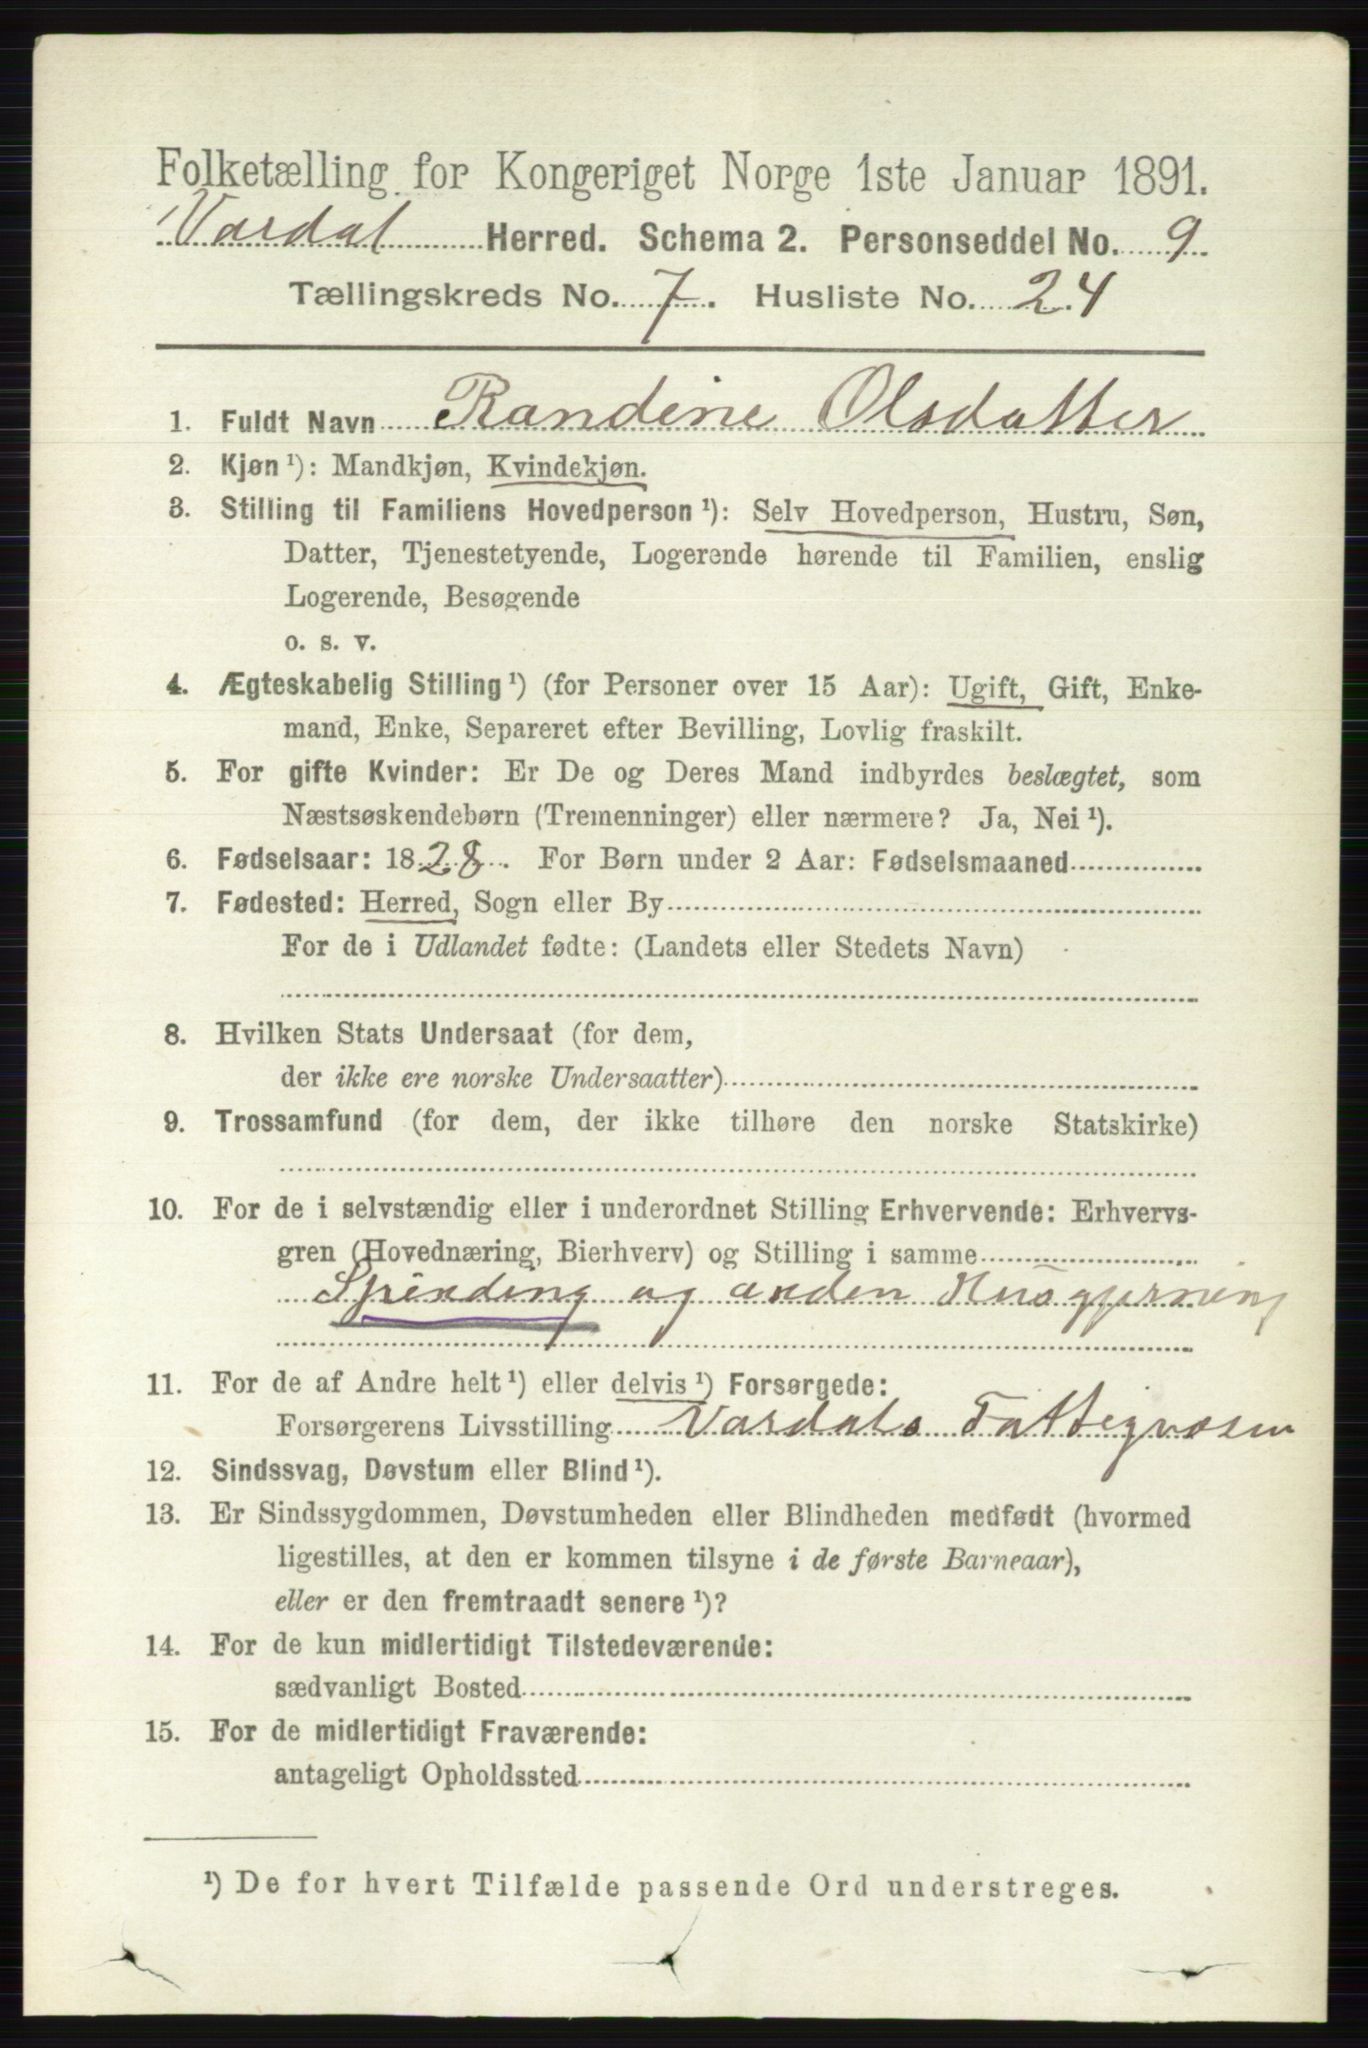 Folketælling for Kongeriget Norge 1ste Januar 1891.
Vardal Herred. Schema 2. Personseddel No. 9
Tællingskreds No. 7. Husliste No. 24
1. Fuldt Navn Randine Olsdatter
2. Kjøn ¹): Mandkjøn, Kvindekjøn.
3. Stilling til Familiens Hovedperson ¹): Selv Hovedperson, Hustru, Søn,
Datter, Tjenestetyende, Logerende hørende til Familien, enslig
Logerende, Besøgende
o. s. v.
4. Ægteskabelig Stilling ¹) (for Personer over 15 Aar): Ugift, Gift, Enke-
mand, Enke, Separeret efter Bevilling, Lovlig fraskilt.
5. For gifte Kvinder: Er De og Deres Mand indbyrdes beslægtet, som
Næstsøskendebørn (Tremenninger) eller nærmere? Ja, Nei ¹).
6. Fødselsaar: 1828. For Børn under 2 Aar: Fødselsmaaned
7. Fødested: Herred, Sogn eller By
For de i Udlandet fødte: (Landets eller Stedets Navn)
8. Hvilken Stats Undersaat (for dem,
der ikke ere norske Undersaatter)
9. Trossamfund (for dem, der ikke tilhøre den norske Statskirke)
10. For de i selvstændig eller i underordnet Stilling Erhvervende: Erhvervs-
gren (Hovednæring, Bierhverv) og Stilling i samme
Spinding og anden Husgjerning
11. For de af Andre helt ¹) eller delvis ¹) Forsørgede:
Forsørgerens Livsstilling Vardals Fattigvæsen
12. Sindssvag, Døvstum eller Blind ¹).
13. Er Sindssygdommen, Døvstumheden eller Blindheden medfødt (hvormed
ligestilles, at den er kommen tilsyne i de første Barneaar),
eller er den fremtraadt senere ¹)?
14. For de kun midlertidigt Tilstedeværende:
sædvanligt Bosted
15. For de midlertidigt Fraværende:
antageligt Opholdssted
¹) De for hvert Tilfælde passende Ord understreges.